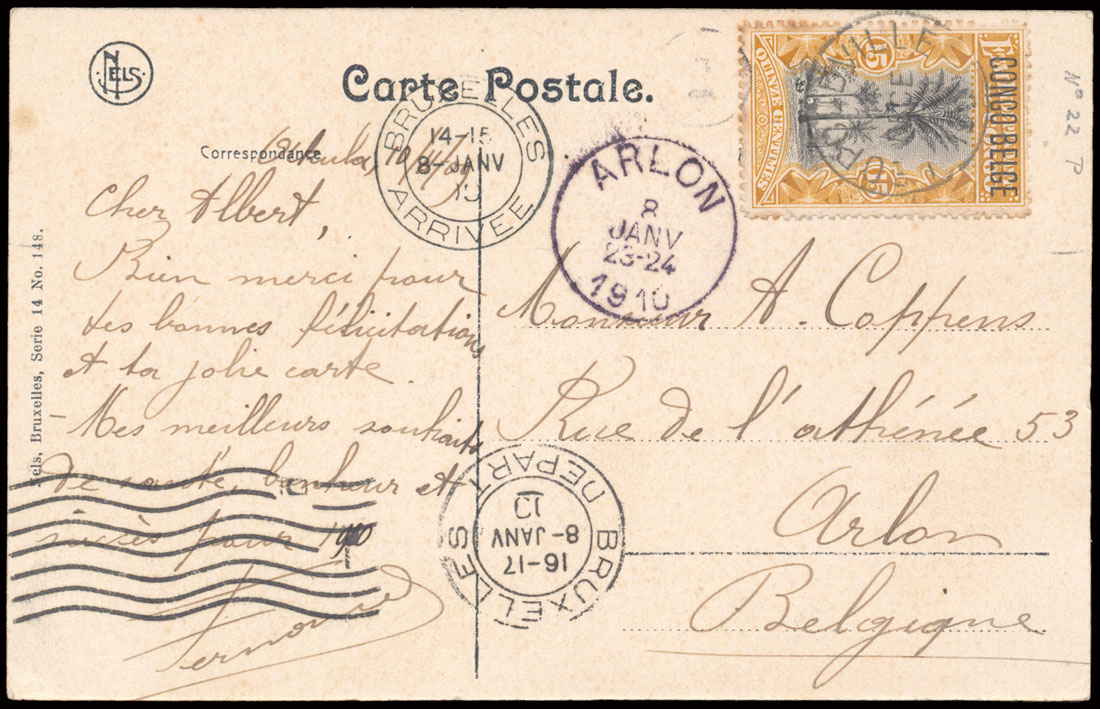 NELS
Carte Postale.
Correspondance
BRUXELLES
14-15
8-JANV
ARRIVÉE
ARLON
8
JANV
23-24
1910
CONGO BELGE
15
15
QUINZE CENTIMES
VILLE
Nº 22
Cher Albert,
Bien merci pour
tes bonnes félicitations
et ta jolie carte.
Mes meilleurs souhaits
de santé, bonheur et
succès pour 1910
Monsieur A. Coppens
Rue de l'athénée 53
Arlon
Belgique
BRUXELLES
DEPART
16-17
8-JANV
Nels, Bruxelles, Serie 14 No. 148.